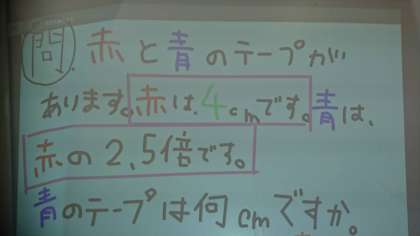 問. 赤と青のテープが
あります。赤は4cmです。青は、
赤の2.5倍です。
青のテープは何cmですか。